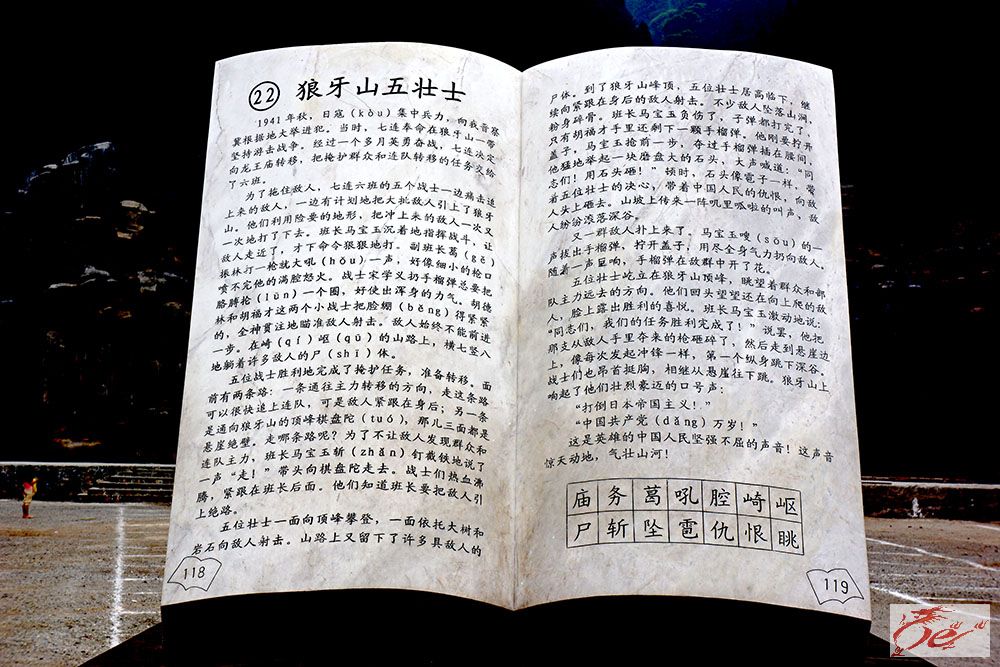 22 狼牙山五壮士
1941年秋，日寇(kòu)集中兵力，向我晋察
冀根据地大举进犯。当时，七连奉命在狼牙山一带
坚持游击战争。经过一个多月英勇奋战，七连决定
向龙王庙转移，把掩护群众和连队转移的任务交给
了六班。
为了拖住敌人，七连六班的五个战士一边痛击追
上来的敌人，一边有计划地把大批敌人引上了狼牙
山。他们利用险要的地形，把冲上来的敌人一次又
一次地打了下去。班长马宝玉沉着地指挥战斗，让
敌人走近了，才下命令狠狠地打。副班长葛(gě)
振林打一枪就大吼(hǒu)一声，好像细小的枪口
喷不完他的满腔怒火。战士宋学义扔手榴弹总要把
胳膊抡(lūn)一个圈，好使出浑身的力气。胡德
林和胡福才这两个小战士把脸绷(běng)得紧紧
的，全神贯注地瞄准敌人射击。敌人始终不能前进
一步。在崎(qí)岖(qū)的山路上，横七竖八
地躺着许多敌人的尸(shī)体。
五位战士胜利地完成了掩护任务，准备转移。面
前有两条路：一条通往主力转移的方向，走这条路
可以很快追上连队，可是敌人紧跟在身后；另一条
是通向狼牙山的顶峰棋盘陀(tuó)，那儿三面都是
悬崖绝壁。走哪条路呢？为了不让敌人发现群众和
连队主力，班长马宝玉斩(zhǎn)钉截铁地说了
一声“走！”带头向棋盘陀走去。战士们热血沸
腾，紧跟在班长后面。他们知道班长要把敌人引
上绝路。
五位壮士一面向顶峰攀登，一面依托大树和
岩石向敌人射击。山路上又留下了许多具敌人的
118
尸体。到了狼牙山峰顶，五位壮士居高临下，继
续向紧跟在身后的敌人射击。不少敌人坠落山涧，
粉身碎骨。班长马宝玉负伤了，子弹都打完了，
只有胡福才手里还剩下一颗手榴弹。他刚要拧开
盖子，马宝玉抢前一步，夺过手榴弹插在腰间，
他猛地举起一块磨盘大的石头，大声喊道：“同
志们！用石头砸！”顿时，石头像雹子一样，带
着五位壮士的决心，带着中国人民的仇恨，向敌
人头上砸去。山坡上传来一阵叽里呱啦的叫声，敌
人纷纷滚落深谷。
又一群敌人扑上来了。马宝玉嗖(sōu)的一
声拔出手榴弹，拧开盖子，用尽全身气力扔向敌人。
随着一声巨响，手榴弹在敌群中开了花。
五位壮士屹立在狼牙山顶峰，眺望着群众和部
队主力远去的方向。他们回头望望还在向上爬的敌
人，脸上露出胜利的喜悦。班长马宝玉激动地说：
“同志们，我们的任务胜利完成了！”说罢，他把
那支从敌人手里夺来的枪砸碎了，然后走到悬崖边
上，像每次发起冲锋一样，第一个纵身跳下深谷。
战士们也昂首挺胸，相继从悬崖往下跳。狼牙山上
响起了他们壮烈豪迈的口号声：
“打倒日本帝国主义！”
“中国共产党(dǎng)万岁！”
这是英雄的中国人民坚强不屈的声音！这声音
惊天动地，气壮山河！
庙务葛吼腔崎岖
尸斩坠雹仇恨眺
119